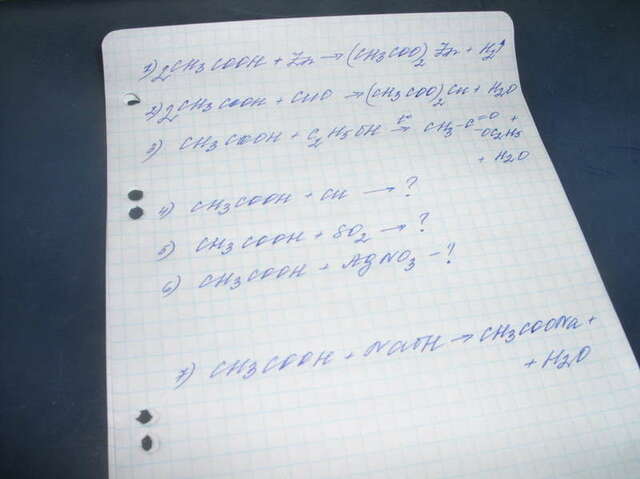 1) 2CH3COOH + Zn → (CH3COO)2 Zn + H2↑
2) 2CH3COOH + CuO → (CH3COO)2 Cu + H2O
3) CH3COOH + C2H5OH t° → CH3-C=O -OC2H5 +
+ H2O
4) CH3COOH + Cu → ?
5) CH3COOH + SO2 → ?
6) CH3COOH + AgNO3 - ?
7) CH3COOH + NaOH → CH3COONa +
+ H2O